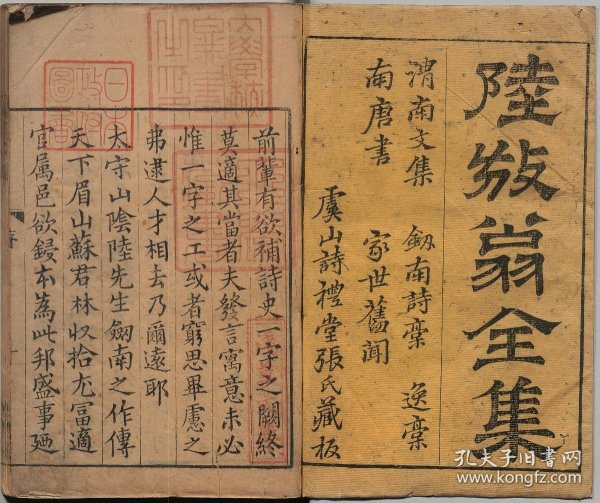 陸放翁全集
渭南文集　劔南詩稾　逸稾
南唐書　家世舊聞
虞山詩禮堂張氏藏板
前輩有欲補詩史一字之闕終
莫適其當者夫發言寓意未必
惟一字之工或者窮思畢慮之
弗逮人才相去乃爾遠耶
太守山陰陸先生劔南之作傳
天下眉山蘇君林収拾尤富適
官属邑欲鋟本為此邦盛事廼
序
一
孔夫子旧书网
www.kongfz.com